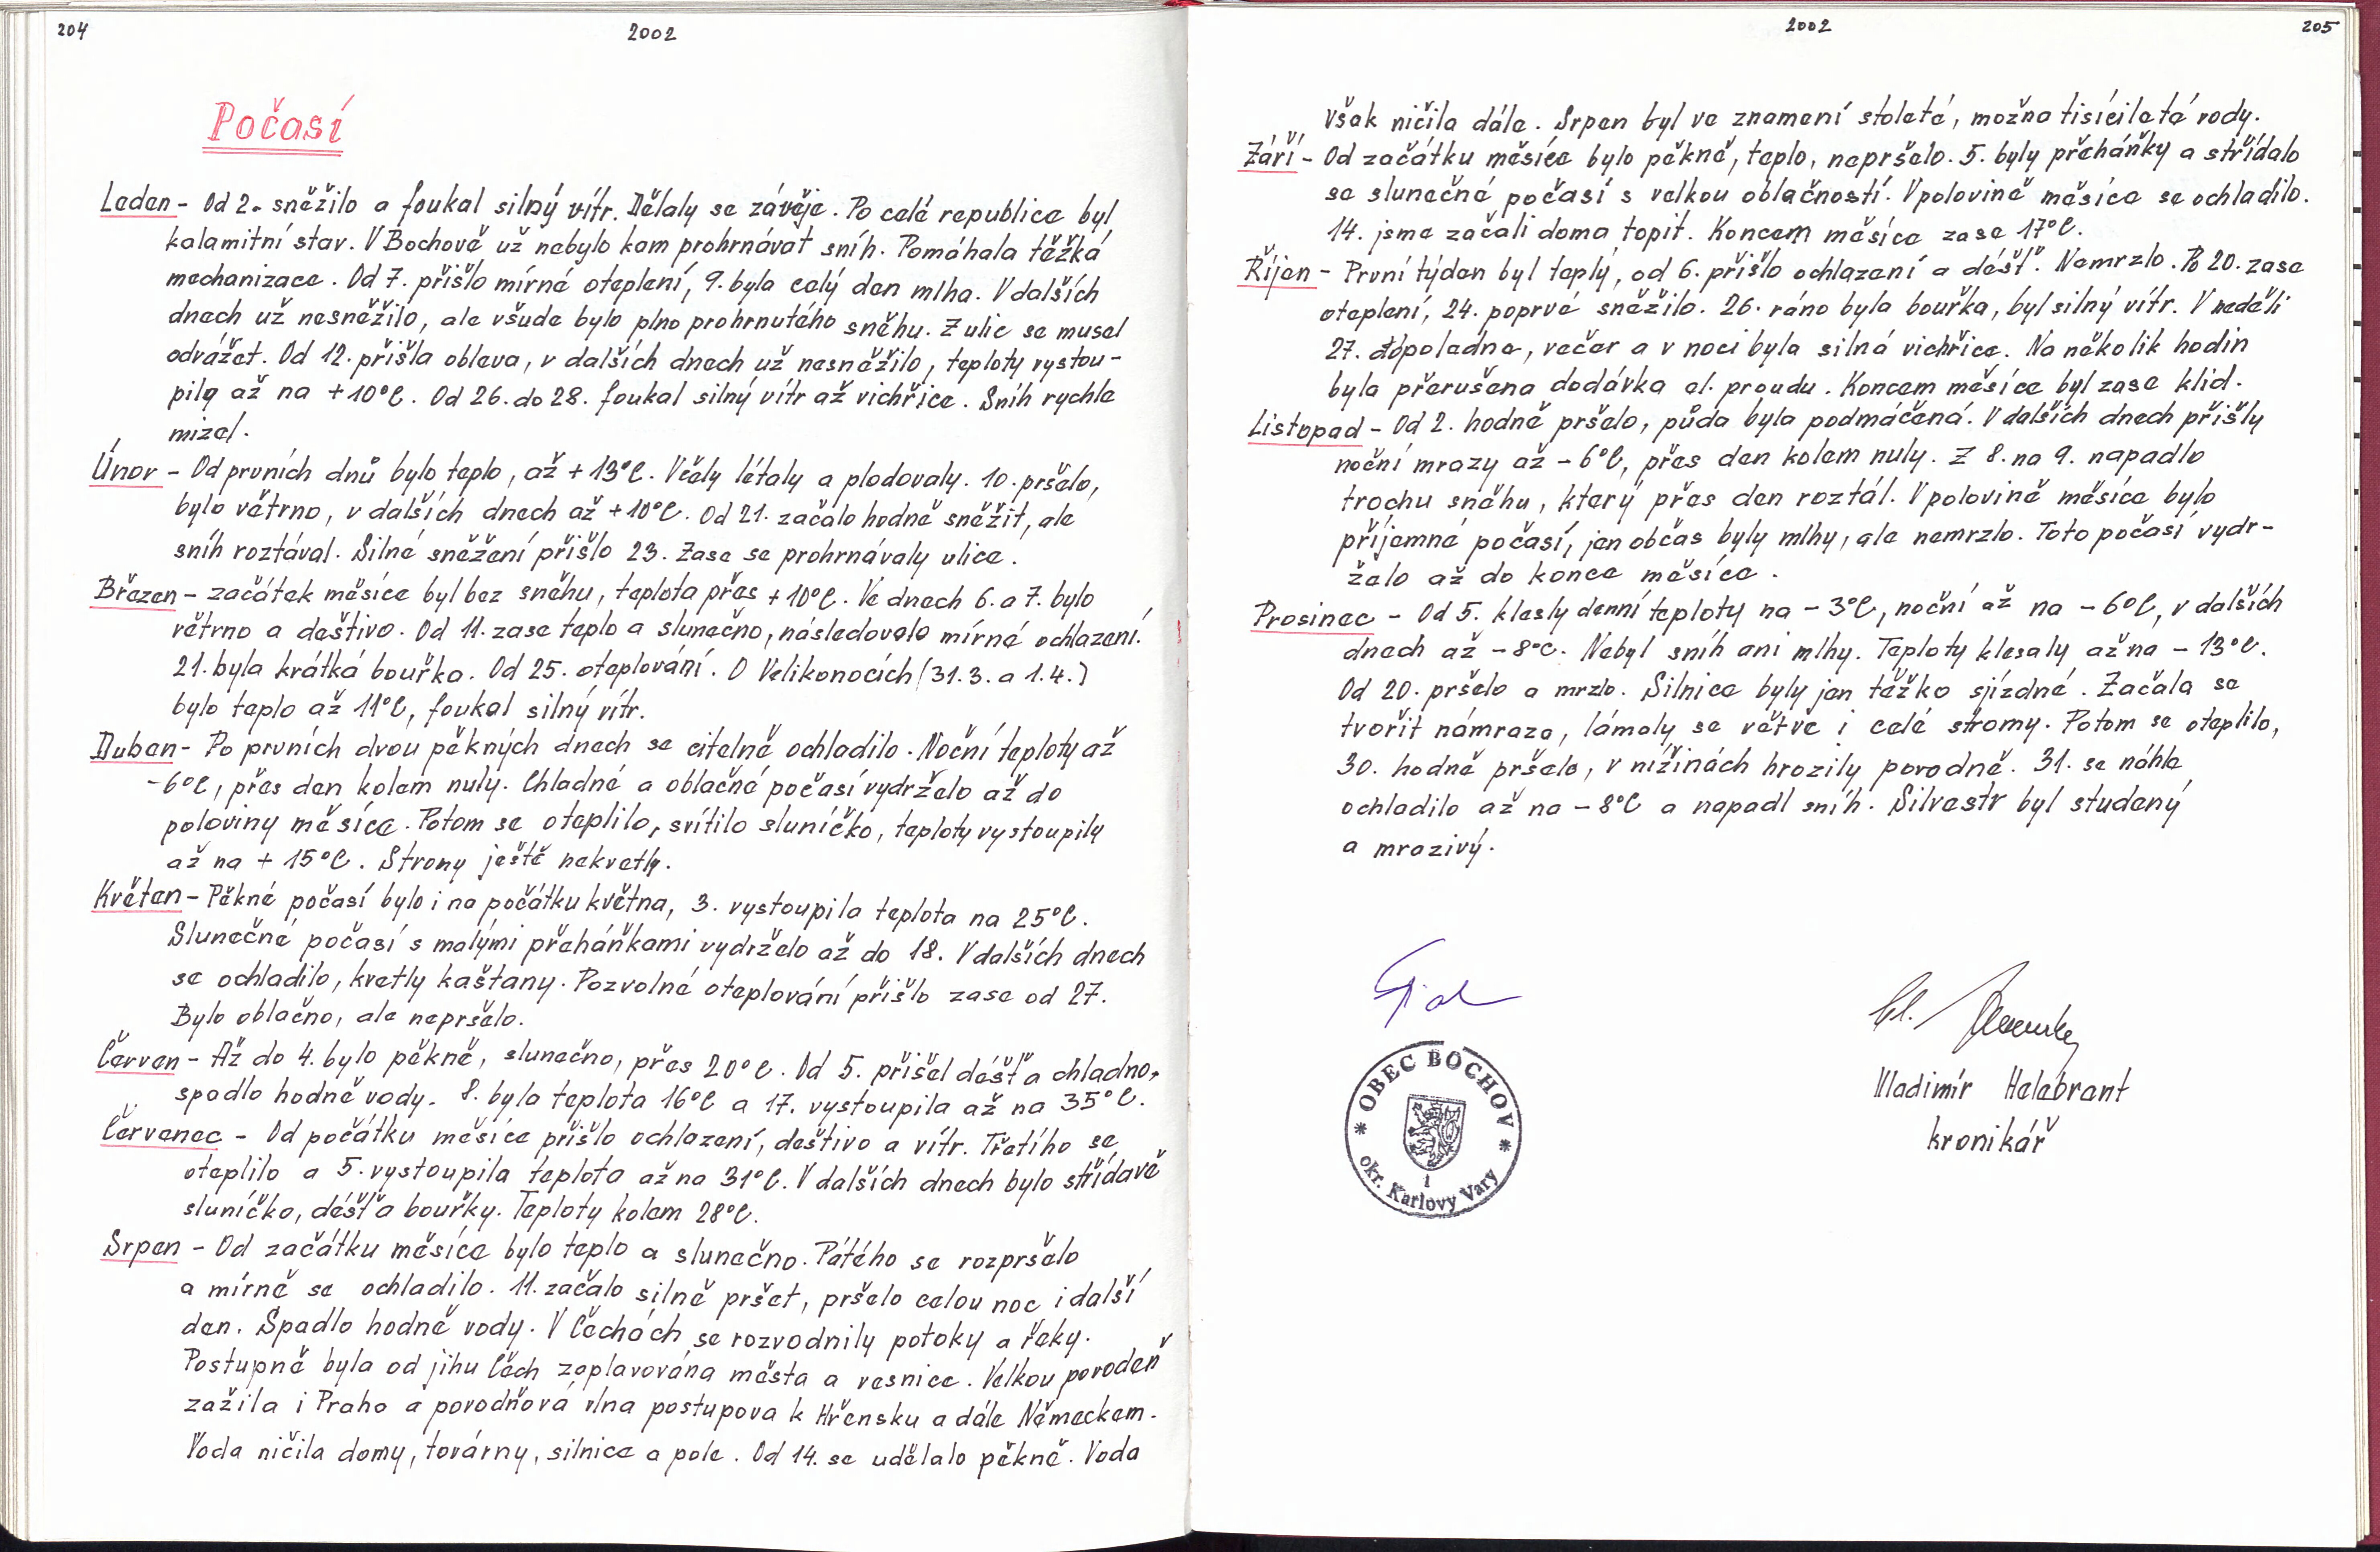 204
2002
Počasí
Leden - Od 2. sněžilo a foukal silný vítr. Dělaly se závěje. Po celé republice byl
kalamitní stav. V Bochově už nebylo kam prohrnávat sníh. Pomáhala těžká
mechanizace. Od 7. přišlo mírné oteplení, 9. byla celý den mlha. V dalších
dnech už nesněžilo, ale všude bylo plno prohrnutého sněhu. Z ulic se musel
odvážet. Od 12. přišla obleva, v dalších dnech už nesněžilo, teploty vystou-
pily až na +10°C. Od 26. do 28. foukal silný vítr až vichřice. Sníh rychle
mizel.
Únor - Od prvních dnů bylo teplo, až +13°C. Včely létaly a plodovaly. 10. pršelo,
bylo větrno, v dalších dnech až +10°C. Od 21. začalo hodně sněžit, ale
sníh roztával. Silné sněžení přišlo 23. Zase se prohrnávaly ulice.
Březen - začátek měsíce byl bez sněhu, teplota přes +10°C. Ve dnech 6. a 7. bylo
větrno a deštivo. Od 11. zase teplo a slunečno, následovalo mírné ochlazení.
21. byla krátká bouřka. Od 25. oteplování. O Velikonocích (31.3. a 1.4.)
bylo teplo až 11°C, foukal silný vítr.
Duben - Po prvních dvou pěkných dnech se citelně ochladilo. Noční teploty až
-6°C, přes den kolem nuly. Chladné a oblačné počasí vydrželo až do
poloviny měsíce. Potom se oteplilo, svítilo sluníčko, teploty vystoupily
až na +15°C. Stromy ještě nekvetly.
Květen - Pěkné počasí bylo i na počátku května, 3. vystoupila teplota na 25°C.
Slunečné počasí s malými přeháňkami vydrželo až do 18. V dalších dnech
se ochladilo, kvetly kaštany. Pozvolné oteplování přišlo zase od 27.
Bylo oblačno, ale nepršelo.
Červen - Až do 4. bylo pěkně, slunečno, přes 20°C. Od 5. přišel déšť a chladno,
spadlo hodně vody. 8. byla teplota 16°C a 17. vystoupila až na 35°C.
Červenec - Od počátku měsíce přišlo ochlazení, deštivo a vítr. Třetího se
oteplilo a 5. vystoupila teplota až na 31°C. V dalších dnech bylo střídavě
sluníčko, déšť a bouřky. Teploty kolem 28°C.
Srpen - Od začátku měsíce bylo teplo a slunečno. Pátého se rozpršelo
a mírně se ochladilo. 11. začalo silně pršet, pršelo celou noc i další
den. Spadlo hodně vody. V Čechách se rozvodnily potoky a řeky.
Postupně byla od jihu Čech zaplavována města a vesnice. Velkou povodeň
zažila i Praha a povodňová vlna postupova k Hřensku a dále Německem.
Voda ničila domy, továrny, silnice a pole. Od 14. se udělalo pěkně. Voda
2002
205
však ničila dále. Srpen byl ve znamení stoleté, možna tisícileté vody.
Září - Od začátku měsíce bylo pěkně, teplo, nepršelo. 5. byly přeháňky a střídalo
se slunečné počasí s velkou oblačností. V polovině měsíce se ochladilo.
14. jsme začali doma topit. Koncem měsíce zase 17°C.
Říjen - První týden byl teplý, od 6. přišlo ochlazení a déšť. Nemrzlo. Po 20. zase
oteplení, 24. poprvé sněžilo. 26. ráno byla bouřka, byl silný vítr. V neděli
27. dopoledne, večer a v noci byla silná vichřice. Na několik hodin
byla přerušena dodávka el. proudu. Koncem měsíce byl zase klid.
Listopad - Od 2. hodně pršelo, půda byla podmáčená. V dalších dnech přišly
noční mrazy až -6°C, přes den kolem nuly. Z 8. na 9. napadlo
trochu sněhu, který přes den roztál. V polovině měsíce bylo
příjemné počasí, jen občas byly mlhy, ale nemrzlo. Toto počasí vydr-
želo až do konce měsíce.
Prosinec - Od 5. klesly denní teploty na -3°C, noční až na -6°C, v dalších
dnech až -8°C. Nebyl sníh ani mlhy. Teploty klesaly až na -13°C.
Od 20. pršelo a mrzlo. Silnice byly jen těžko sjízdné. Začala se
tvořit námraza, lámaly se větve i celé stromy. Potom se oteplilo,
30. hodně pršelo, v nížinách hrozily povodně. 31. se náhle
ochladilo až na -8°C a napadl sníh. Silvestr byl studený
a mrazivý.
OBEC BOCHOV
1
okr. Karlovy Vary
Vladimír Helebrant
kronikář